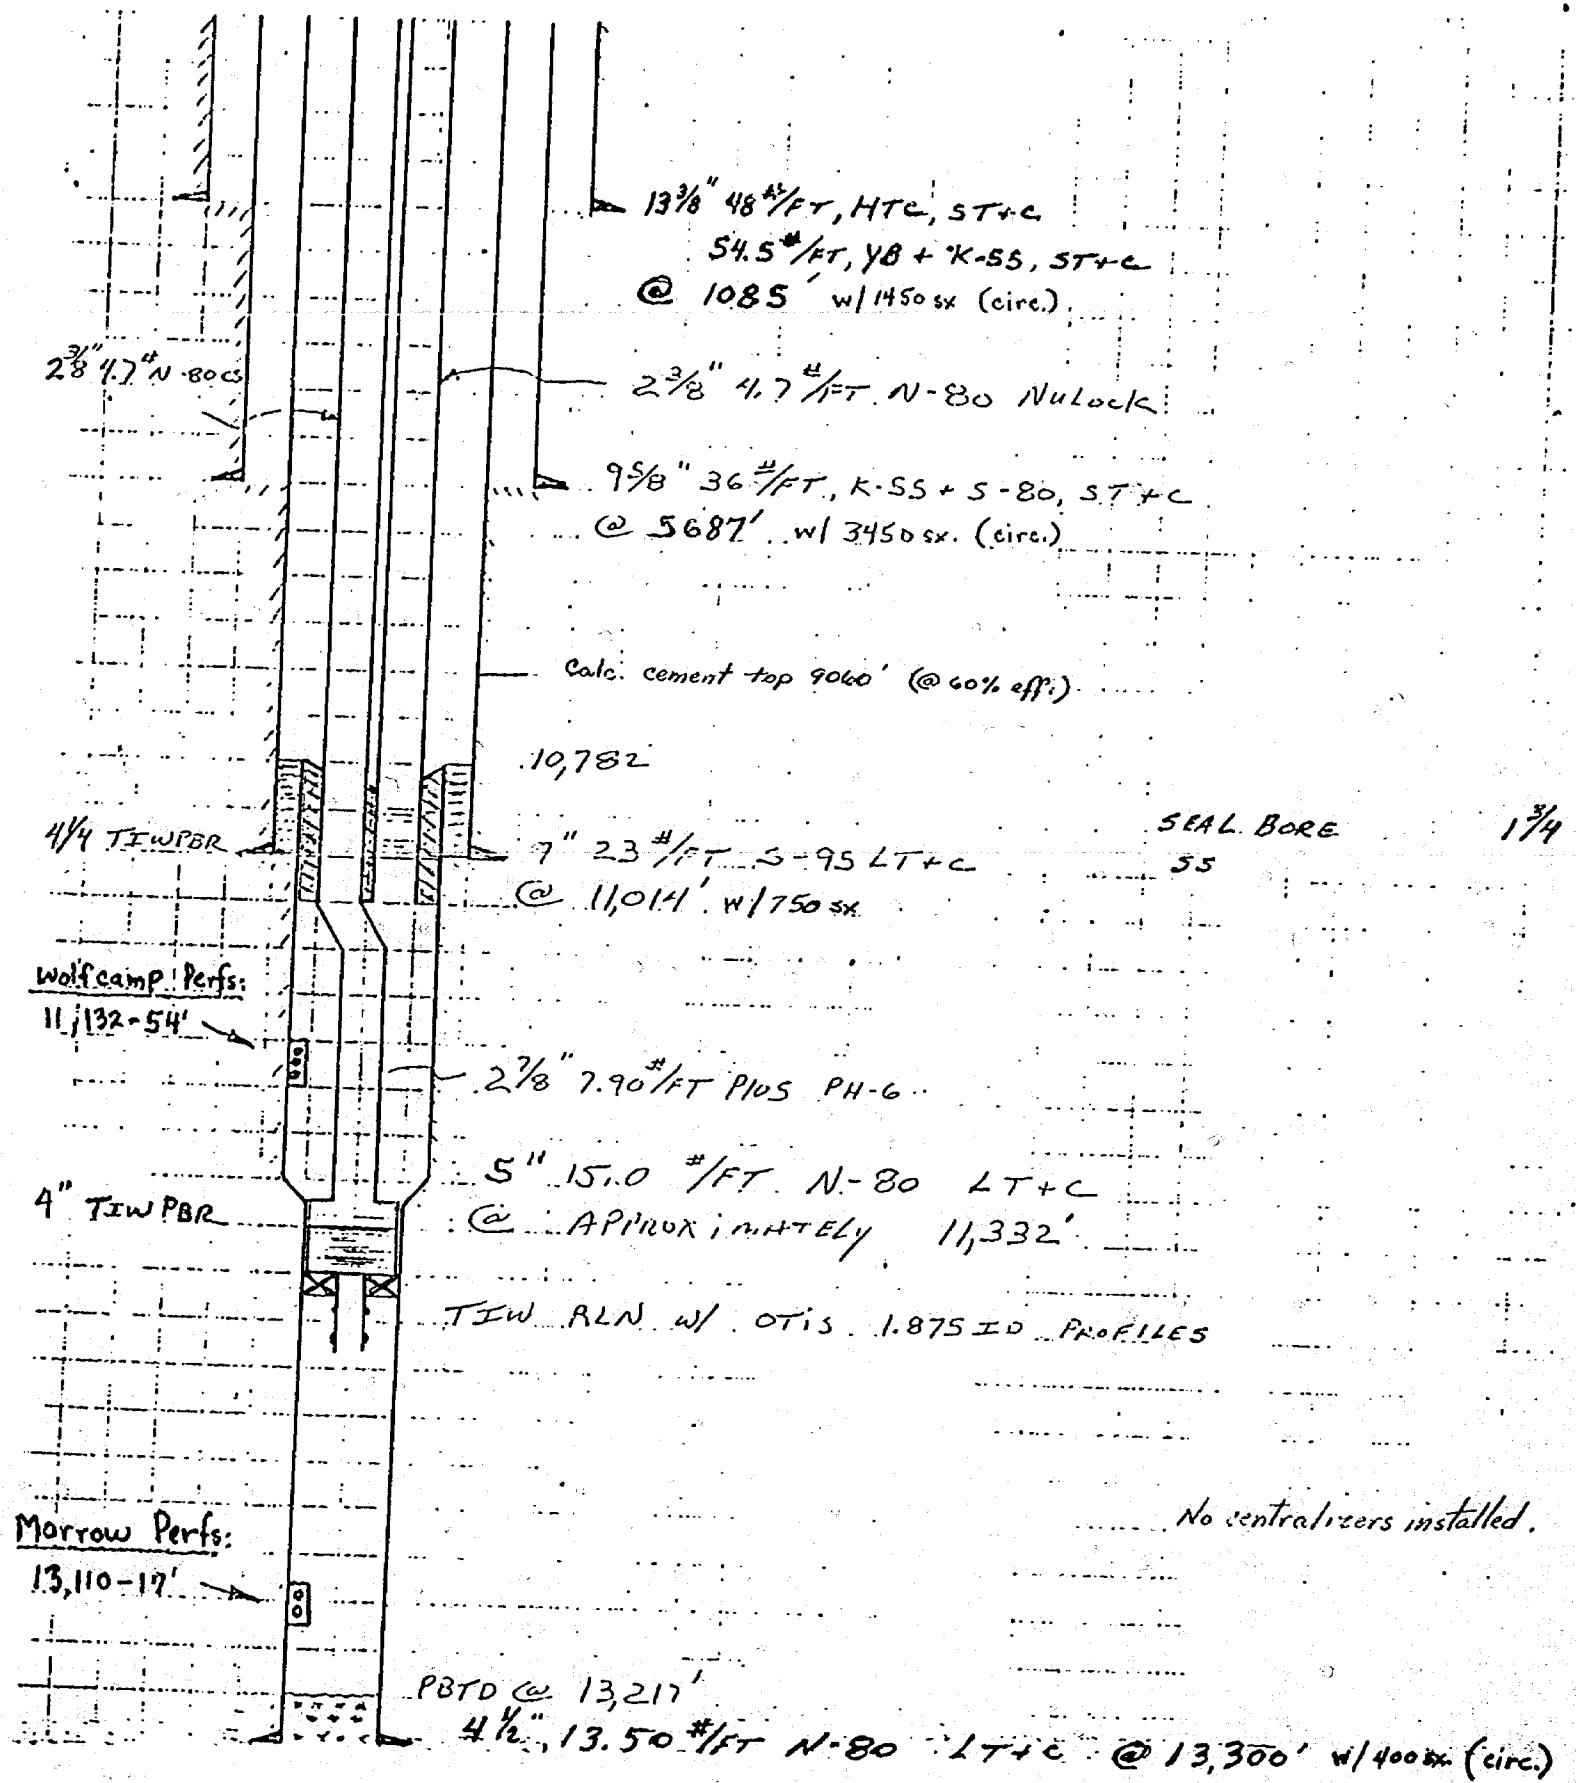 13 3/8" 48 #/FT, HTC, ST+C
54.5 #/FT, YB + K-55, ST+C
@ 1085' w/ 1450 sx (circ.)
2 3/8" 4.7 # N-80 CS
2 3/8" 4.7 #/FT N-80 NuLock
9 5/8" 36 #/FT, K-55 + S-80, ST+C
@ 5687' w/ 3450 sx. (circ.)
Calc. cement top 9060' (@ 60% eff.)
10,782
4 1/4 TIW PBR
SEAL BORE 1 3/4
SS
7" 23 #/FT S-95 LT+C
@ 11,014' w/ 750 sx
Wolfcamp Perfs:
11,132-54'
2 7/8" 7.90 #/FT PLUS PH-6
5" 15.0 #/FT N-80 LT+C
4" TIW PBR
@ APPROXIMATELY 11,332'
TIW RLN w/ OTIS 1.875 ID PROFILES
No centralizers installed.
Morrow Perfs:
13,110-17'
PBTD @ 13,217'
4 1/2", 13.50 #/FT N-80 LT+C @ 13,300' w/ 400 sx (circ.)